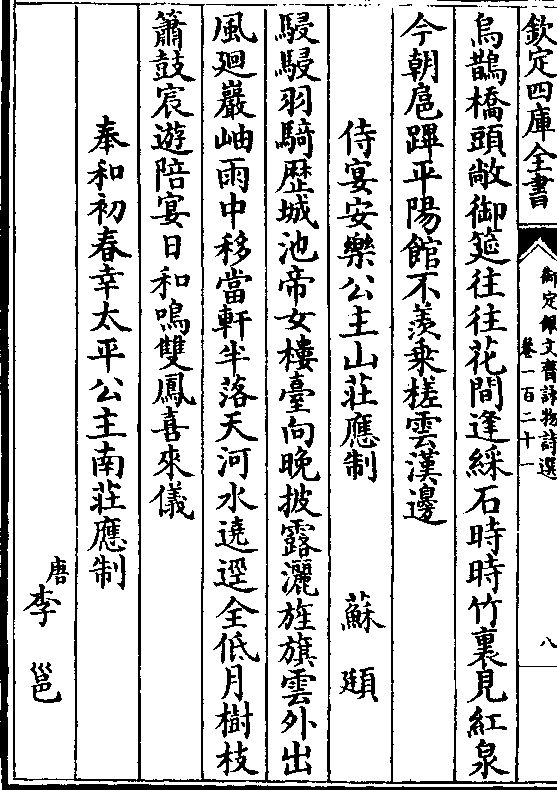 欽定四庫全書
御定佩文齋詠物詩選
卷一百二十一
八
烏鵲橋頭敞御筵往往花間逢綵石時時竹裏見紅泉
今朝扈蹕平陽館不羨乗槎雲漢邊
侍宴安樂公主山莊應制 蘇頲
駸駸羽騎歴城池帝女樓臺向晚披露灑旌旗雲外出
風廻巖岫雨中移當軒半落天河水遶逕全低月樹枝
簫鼓宸遊陪宴日和鳴雙鳳喜來儀
奉和初春幸太平公主南莊應制
唐 李邕